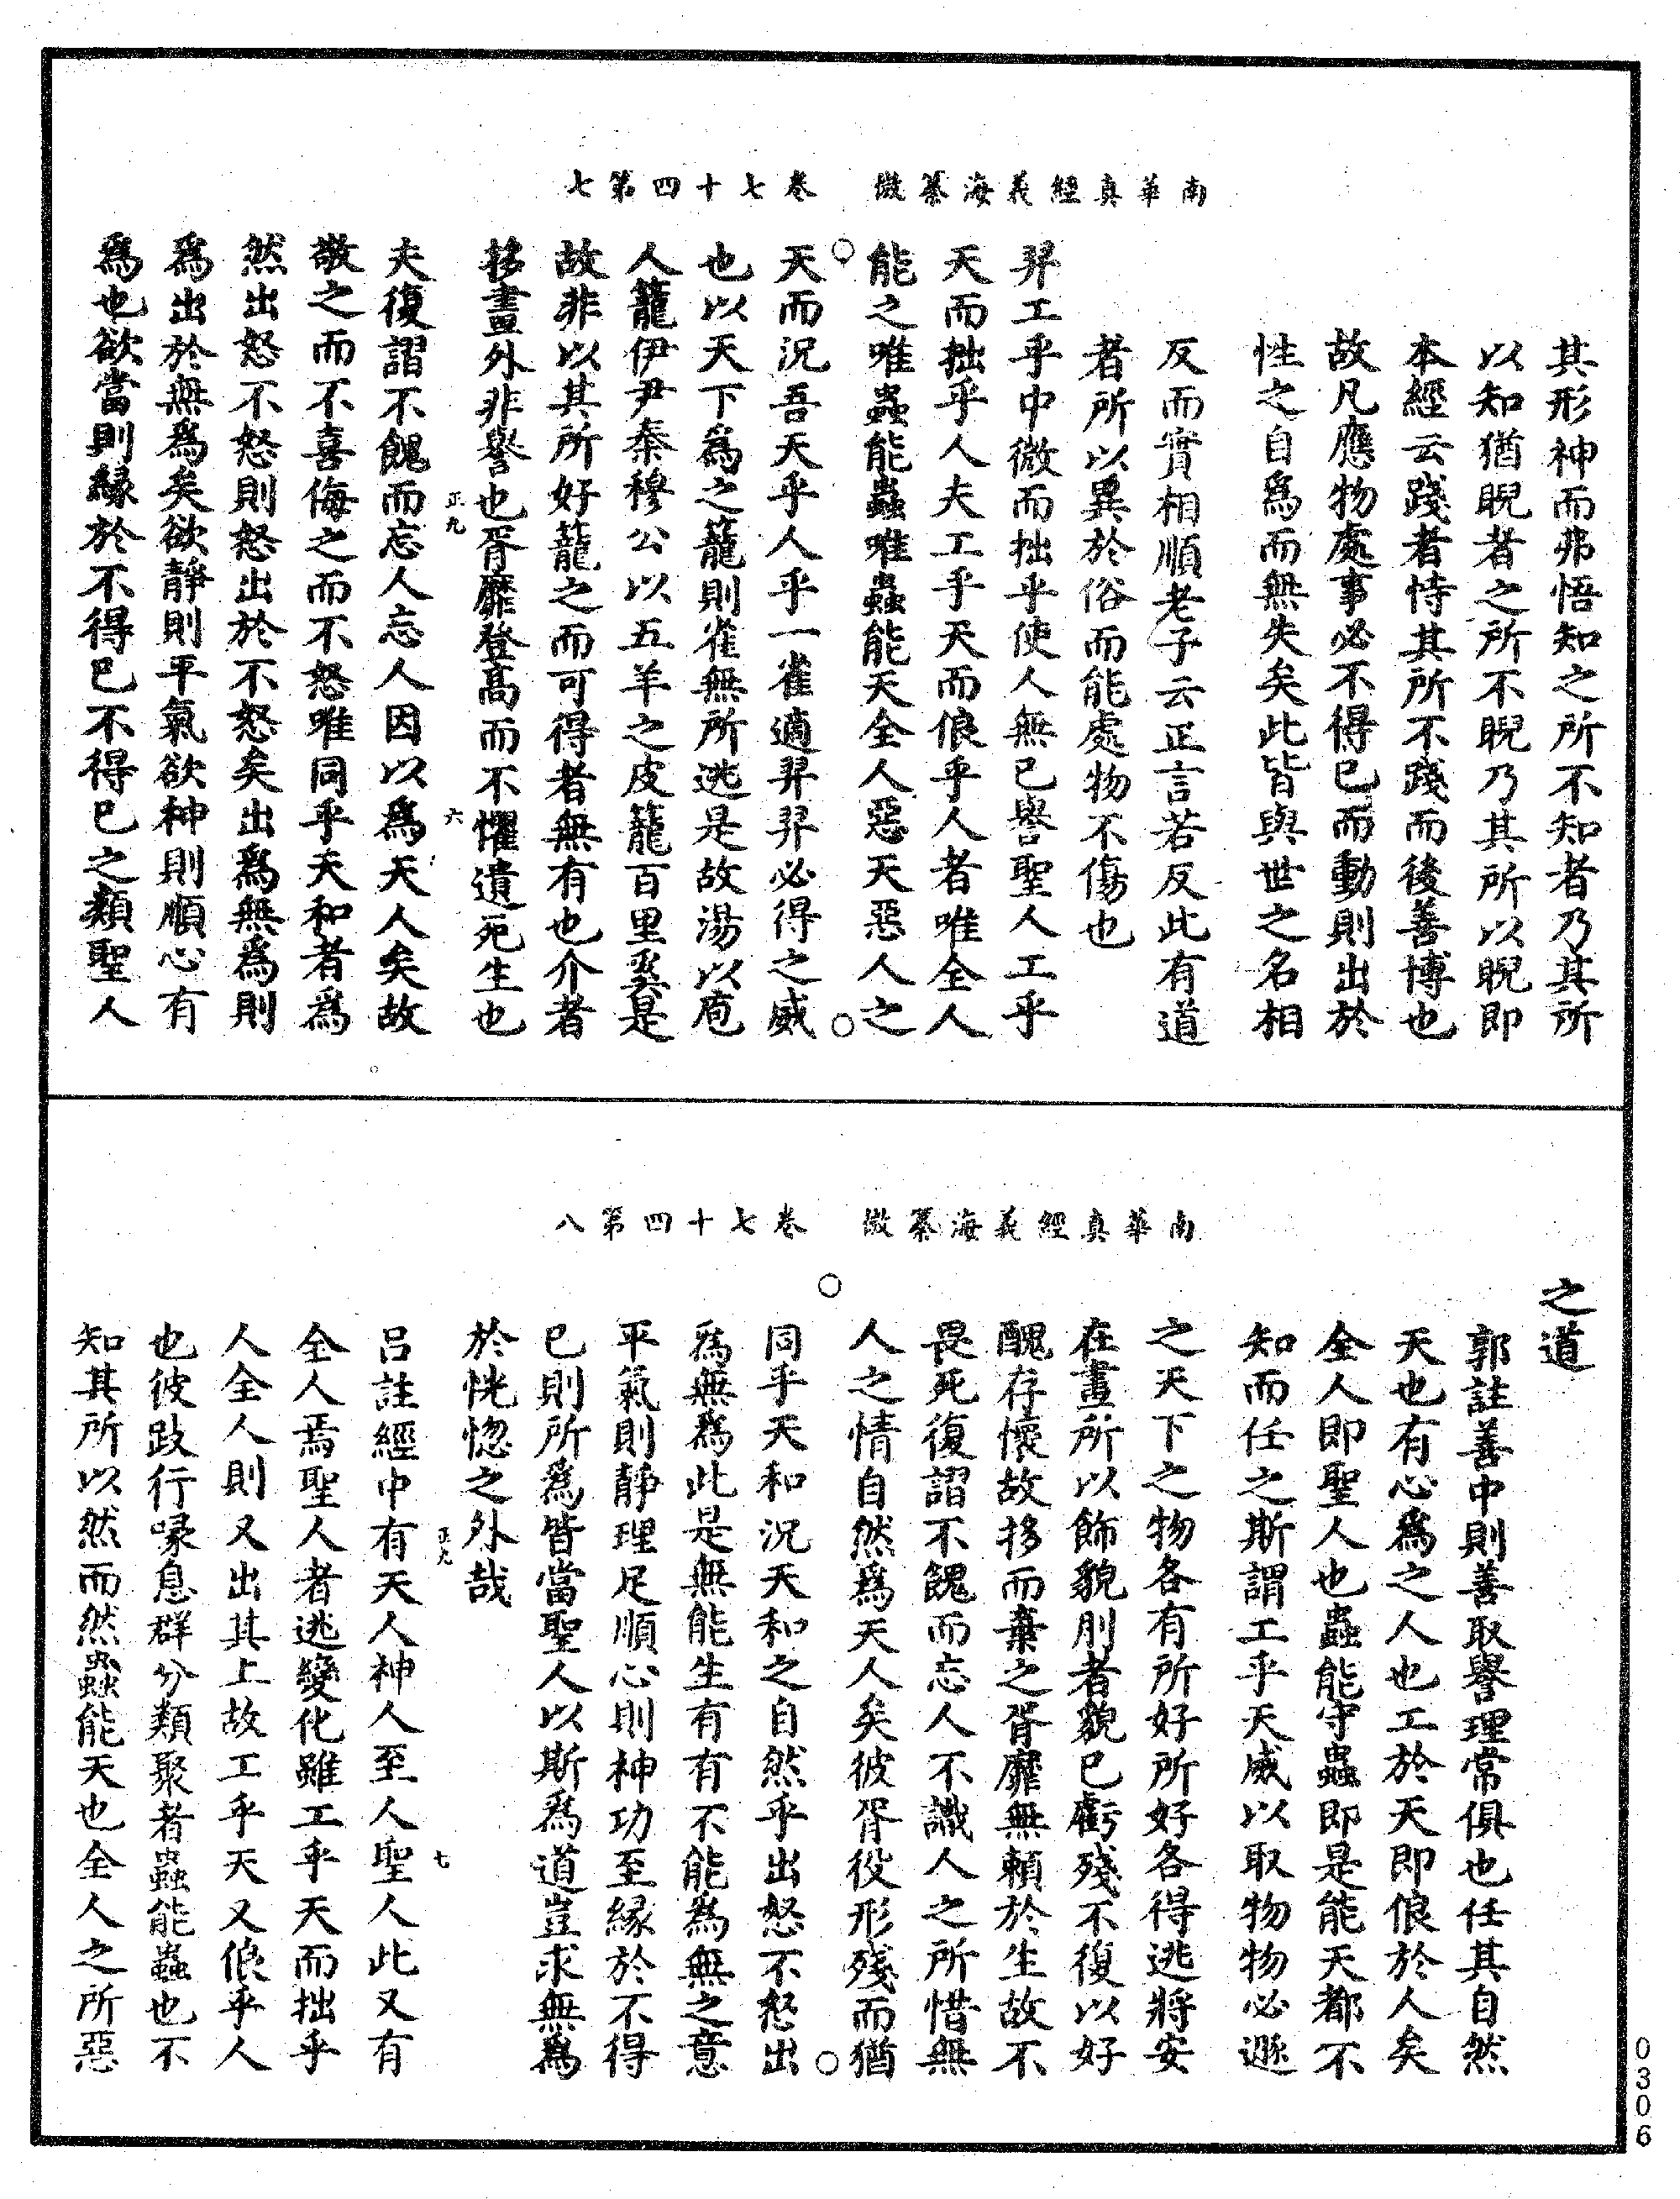 南華真經義海纂微　卷七十四第七
其形神而弗悟知之所不知者乃其所
以知猶睨者之所不睨乃其所以睨即
本經云踐者恃其所不踐而後善博也
故凡應物處事必不得已而動則出於
性之自為而無失矣此皆與世之名相
反而實相順老子云正言若反此有道
者所以異於俗而能處物不傷也
羿工乎中微而拙乎使人無已譽聖人工乎
天而拙乎人夫工乎天而俍乎人者唯全人
能之唯蟲能蟲唯蟲能天全人惡天惡人之
天而況吾天乎人乎一雀適羿羿必得之威
也以天下為之籠則雀無所逃是故湯以庖
人籠伊尹秦穆公以五羊之皮籠百里奚是
故非以其所好籠之而可得者無有也介者
拸畫外非譽也胥靡登高而不懼遺死生也
正九　六
夫復謵不餽而忘人忘人因以為天人矣故
敬之而不喜侮之而不怒唯同乎天和者為
然出怒不怒則怒出於不怒矣出為無為則
為出於無為矣欲靜則平氣欲神則順心有
為也欲當則緣於不得已不得已之類聖人
南華真經義海纂微　卷七十四第八
之道
郭註善中則善取譽理常俱也任其自然
天也有心為之人也工於天即俍於人矣
全人即聖人也蟲能守蟲即是能天都不
知而任之斯謂工乎天威以取物物必逃
之天下之物各有所好所好各得逃將安
在畫所以飾貌刖者貌已虧殘不復以好
醜存懷故拸而棄之胥靡無賴於生故不
畏死復謵不餽而忘人不識人之所惜無
人之情自然為天人矣彼胥役形殘而猶
同乎天和況天和之自然乎出怒不怒出
為無為此是無能生有有不能為無之意
平氣則靜理足順心則神功至緣於不得
已則所為皆當聖人以斯為道豈求無為
於恍惚之外哉
正九　七
呂註經中有天人神人至人聖人此又有
全人焉聖人者逃變化雖工乎天而拙乎
人全人則又出其上故工乎天又俍乎人
也彼跂行喙息群分類聚者蟲能蟲也不
知其所以然而然蟲能天也全人之所惡
0306